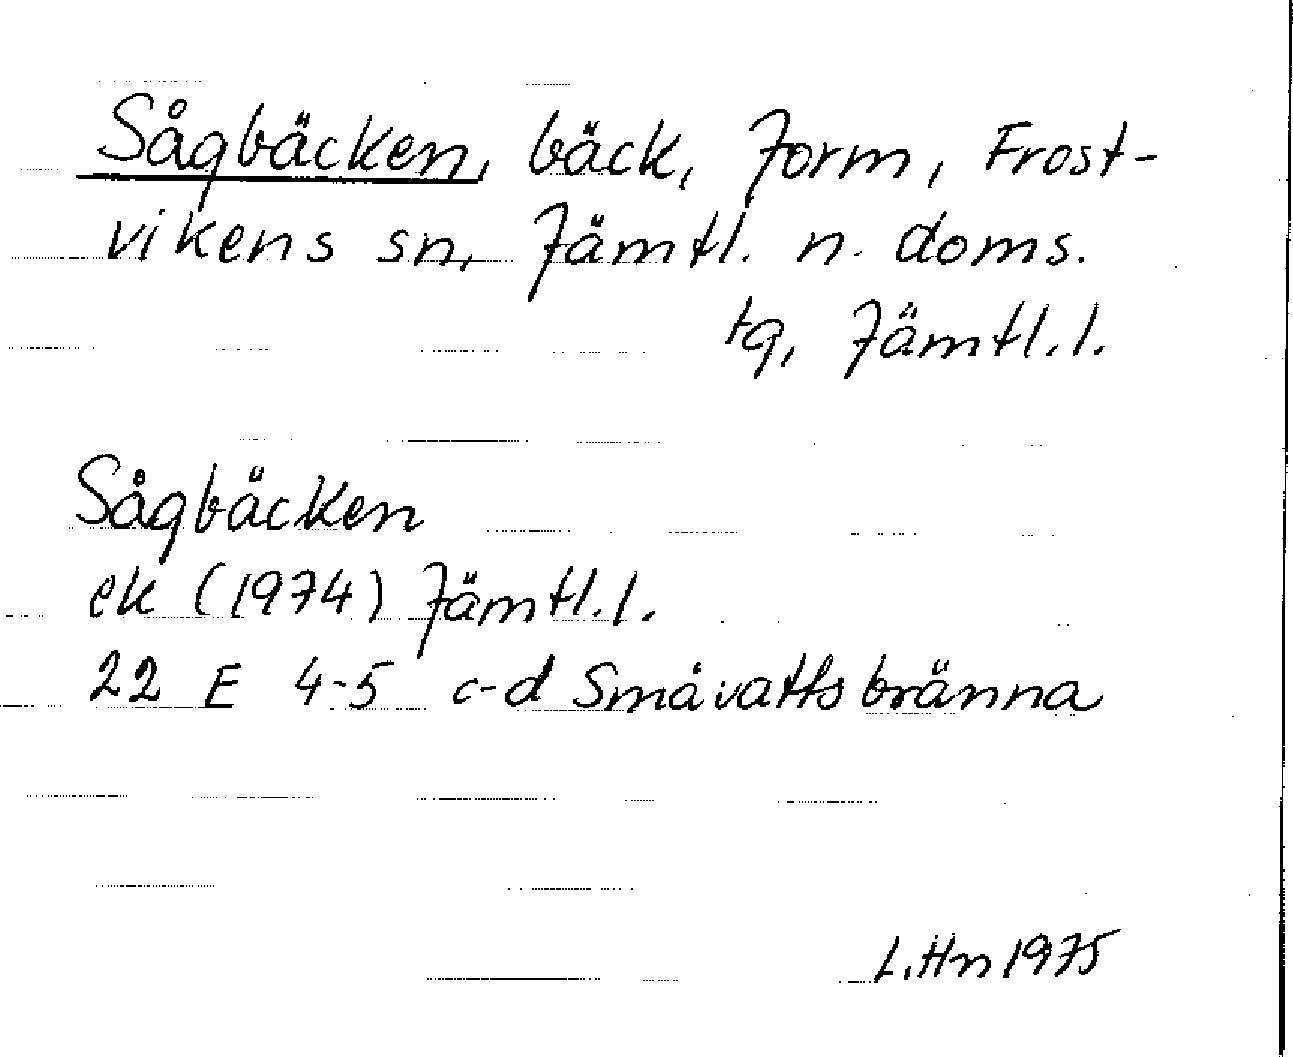 Sågbäcken, bäck, Jorm, Frost-
vikens sn, Jämtl. n. doms.
tg, Jämtl. l.
Sågbäcken
ek (1974) Jämtl. l.
22 E 4-5 c-d Småvattsbränna
L. Hn 1975